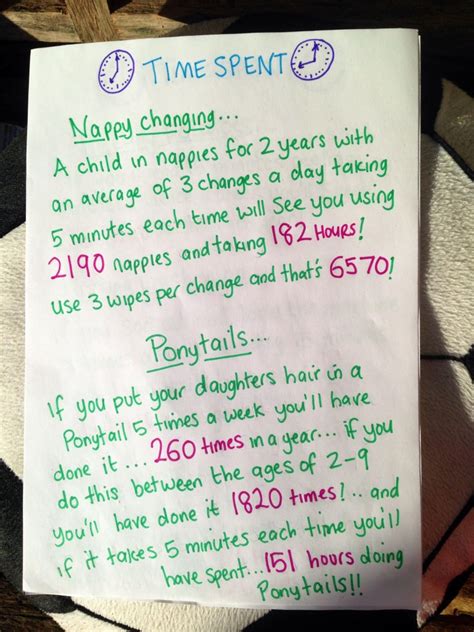 TIME SPENT
Nappy changing...
A child in nappies for 2 years with
an average of 3 changes a day taking
5 minutes each time will see you using
2190 nappies and taking 182 HOURS!
Use 3 wipes per change and that's 6570!
Ponytails...
If you put your daughters hair in a
Ponytail 5 times a week you'll have
done it... 260 times in a year... if you
do this between the ages of 2-9
you'll have done it 1820 times!.. and
if it takes 5 minutes each time you'll
have spent...151 hours doing
Ponytails!!